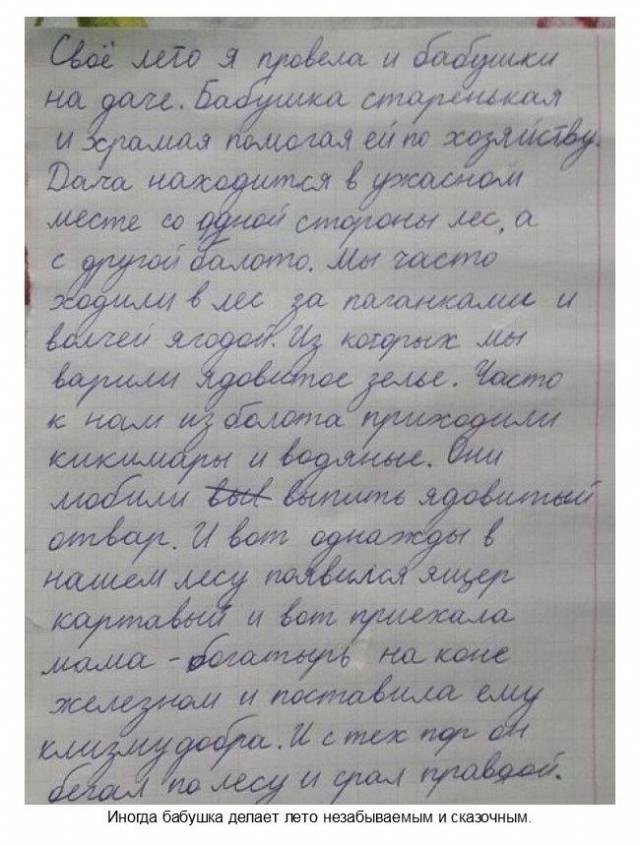 Своё лето я провела и бабушки
на даче. Бабушка старенькая
и храмая помогая ей по хозяйству.
Дача находится в ужасном
месте со одной стороны лес, а
с другой балото. Мы часто
ходили в лес за паганками и
волчей ягодой. Из которых мы
варили ядовитое зелье. Часто
к нам из болота приходили
кикимары и водяные. Они
любили выпить ядовитый
отвар. И вот однажды в
нашем лесу появился ящер
картавый и вот приехала
мама - богатырь на коне
железном и поставила ему
клизму добра. И с тех пор он
бегал по лесу и срал правдой.
Иногда бабушка делает лето незабываемым и сказочным.